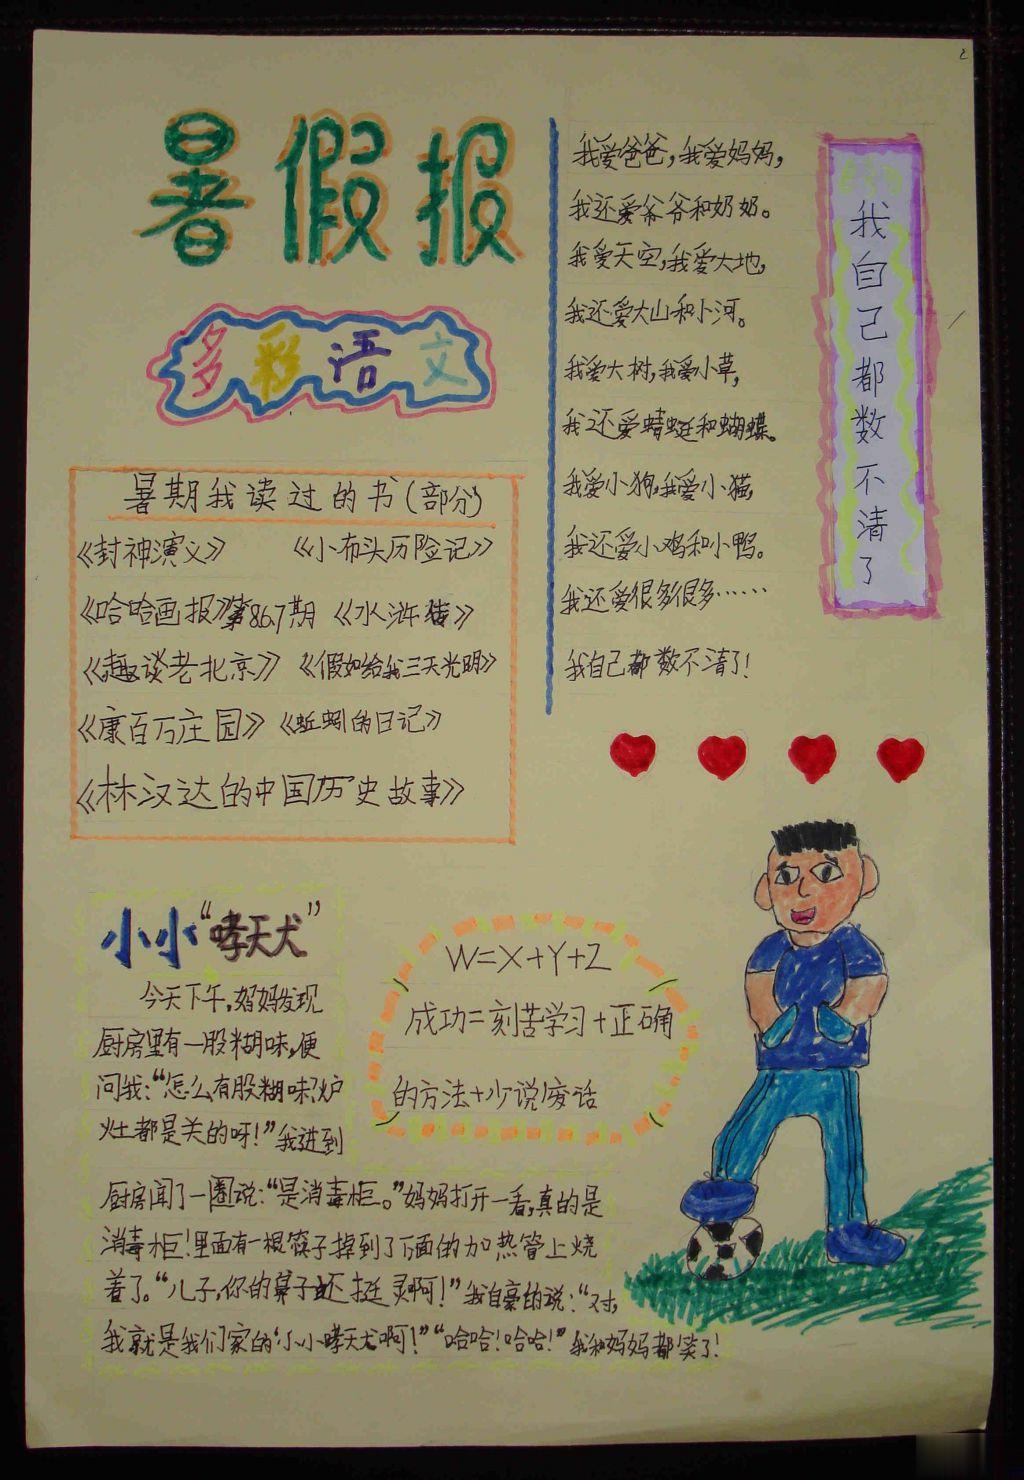 暑假报
多彩语文
暑期我读过的书(部分)
《封神演义》 《小布头历险记》
《哈哈画报》第86.7期 《水浒传》
《趣谈老北京》 《假如给我三天光明》
《康百万庄园》 《蚯蚓的日记》
《林汉达的中国历史故事》
我自己都数不清了
我爱爸爸,我爱妈妈,
我还爱爷爷和奶奶。
我爱天空,我爱大地,
我还爱大山和小河。
我爱大树,我爱小草,
我还爱蜻蜓和蝴蝶。
我爱小狗,我爱小猫,
我还爱小鸡和小鸭。
我还爱很多很多……
我自己都数不清了!
小小“哮天犬”
今天下午,妈妈发现
厨房里有一股糊味,便
问我:“怎么有股糊味?炉
灶都是关的呀!”我进到
厨房闻了一圈说:“是消毒柜。”妈妈打开一看,真的是
消毒柜!里面有一根筷子掉到了下面的加热管上烧
着了。“儿子,你的鼻子还挺灵啊!”我自豪的说:“对,
我就是我们家的‘小小哮天犬’啊!”“哈哈!哈哈!”我和妈妈都笑了!
W=X+Y+Z
成功=刻苦学习+正确
的方法+少说废话